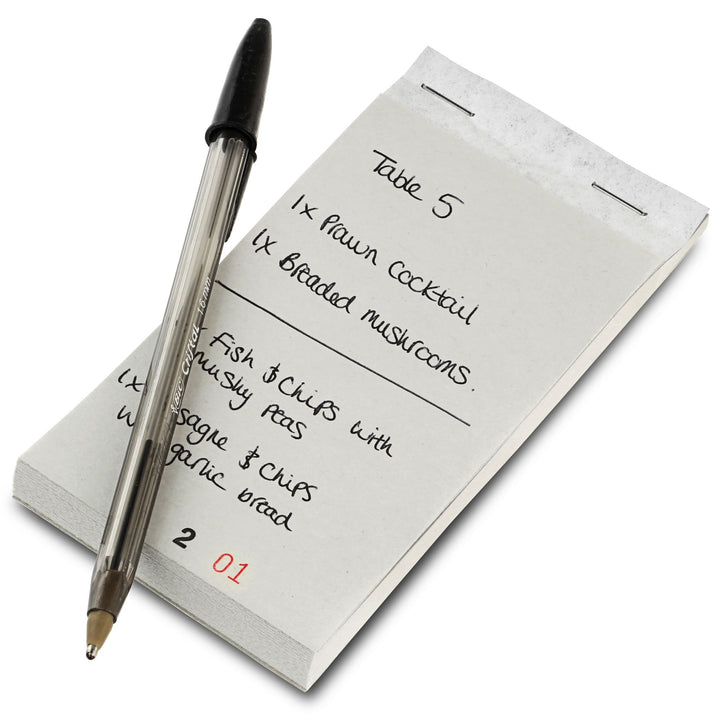 Table 5
1x Prawn Cocktail
1x Breaded mushrooms.
Fish & Chips with
mushy peas
1x sagne & Chips
W garlic bread
2
01
Cristal 1.6mm